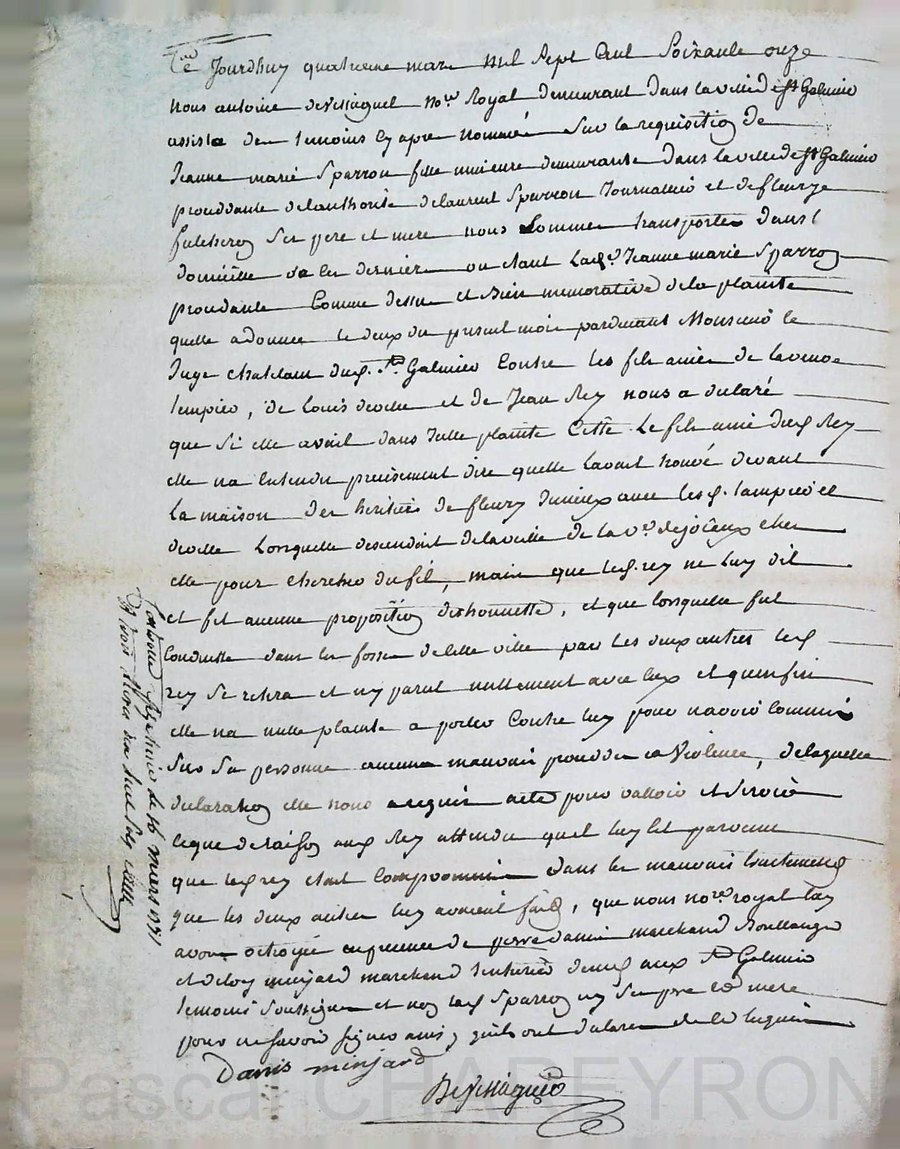 Ce Jourdhuy quatrieme mars mil Sept Cent Soixante onze
nous antoine no.re Royal demeurant dans la ville de St Galmier
assiste des temoins cy apres nommés Sur la requisition de
Jeanne marie Sparron fille mineure demeurante dans la ville de St Galmier
procedante de lauthorité de laurent Sparron Journallier et de fleurye
ses pere et mere nous Sommes transportes dans l
domicille de ces derniers ou etant lad. Jeanne marie Sparron
procedante Comme dessus et Bien memorative de la plainte
quelle a donnee le deux du present mois pardevant Monsieur le
Juge chatelain dud. St. Galmier Contre les fils ainés de la veuve
tempier, de louis deville et de Jean Rey nous a declaré
que Si elle avait dans Jcelle plainte Citté Le fils ainé dud Rey
elle na Entendu precisement dire quelle lavait trouvé devant
La maison des heritiers de fleury avec lesd. tampier et
deville Lorsquelle descendoit de la veille de la ve. chez
elle pour chercher du fil, mais que led rey ne luy dit
et fit aucune proposition deshonnette, et que lorsquelle fut
Conduitte dans les fosses de cette ville par les deux autres led
rey se retira et ny parut nullement avec eux et quenfin
elle na nulle plainte a porter Contre luy pour navoir Commis
Sur Sa personne aucuns mauvais procedés ny Violence, de laquelle
declaration elle nous a requis acte pour valloir et Servir
ce que de raison aud Rey attendu quil luy est parvenu
que led rey etait Compromis dans les mauvais traitements
que les deux autres luy avoient faits, que nous no.re royal luy
avons octroyé en presence de pierre danis marchand Boullanger
et de minjard marchand demeu. aud St Galmier
temoins Soussignes et non lad Sparron ny Ses pere et mere
pour ne savoir signer ainsy quils ont declaré de ce enquis
Danis minjard
Controllé a St Galmier le 16 mars 1771